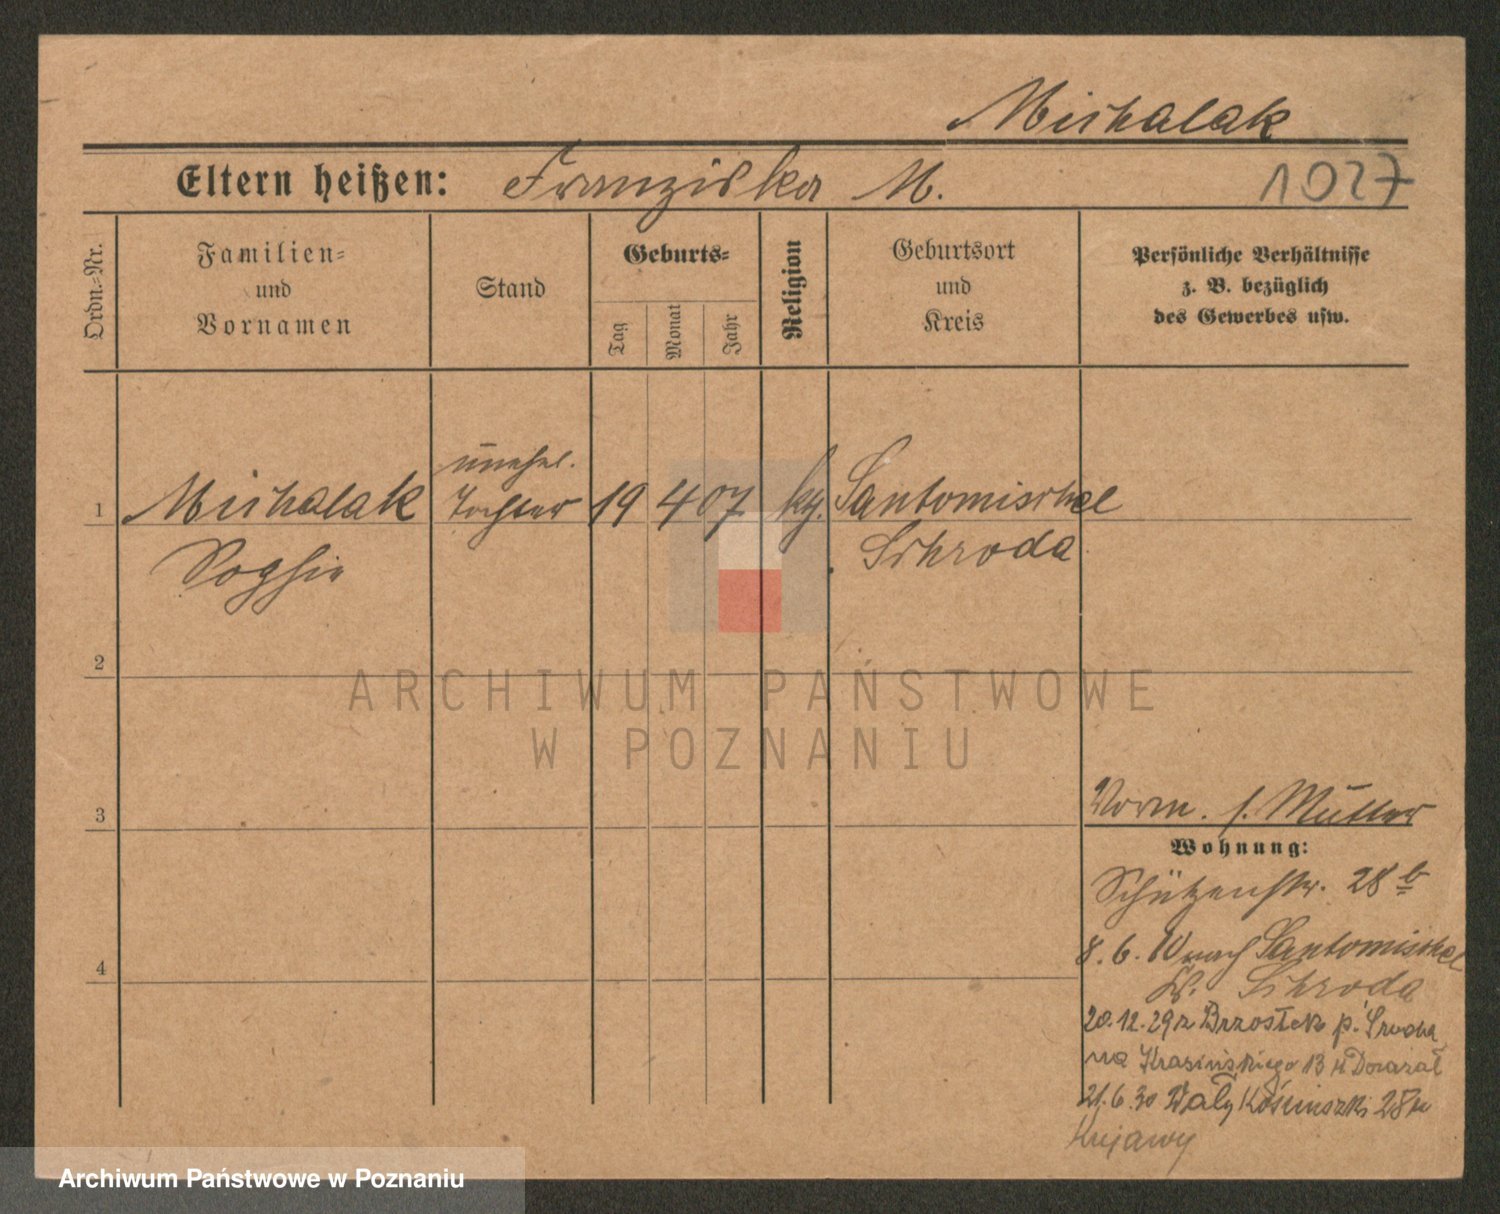 Michalak
Eltern heißen: Franziska M.
1027
Ordn.-Nr.
Familien-
und
Vornamen
Stand
Geburts-
Tag
Monat
Jahr
Religion
Geburtsort
und
Kreis
Persönliche Verhältnisse
z. B. bezüglich
des Gewerbes usw.
unehel.
1 Michalak Tochter 19 4 07 kg. Santomischel
Sophie Schroda
2
3
4
Vorm. s. Mutter
Wohnung:
Schützenstr. 28 b
8. 6. 10 nach Santomischel
Kr. Schroda
20.12.29 z Brzostek p. Środa
na Krasińskiego 13
21.6.30 Wały Kościuszki 28
Kujawy
ARCHIWUM PAŃSTWOWE
W POZNANIU
Archiwum Państwowe w Poznaniu